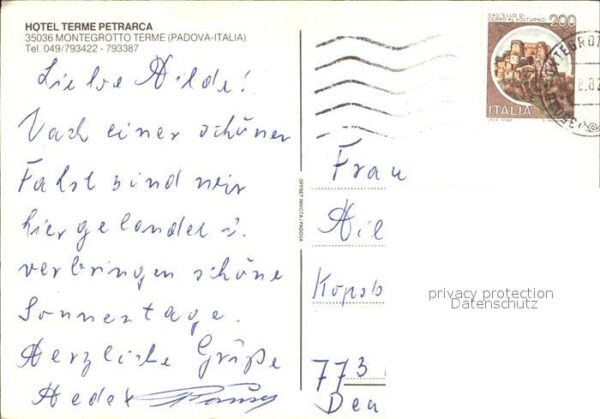 HOTEL TERME PETRARCA
35036 MONTEGROTTO TERME (PADOVA-ITALIA)
Tel. 049/793422 - 793387
Liebe Hilde!
Nach einer schönen
Fahrt sind wir
hier gelandet u.
verbringen schöne
Sonnentage.
Herzliche Grüße
OFFSET INVICTA / PADOVA
CASTELLO DI
CERRO AL VOLTURNO
200
ITALIA
Frau
Hil
773
privacy protection
Datenschutz